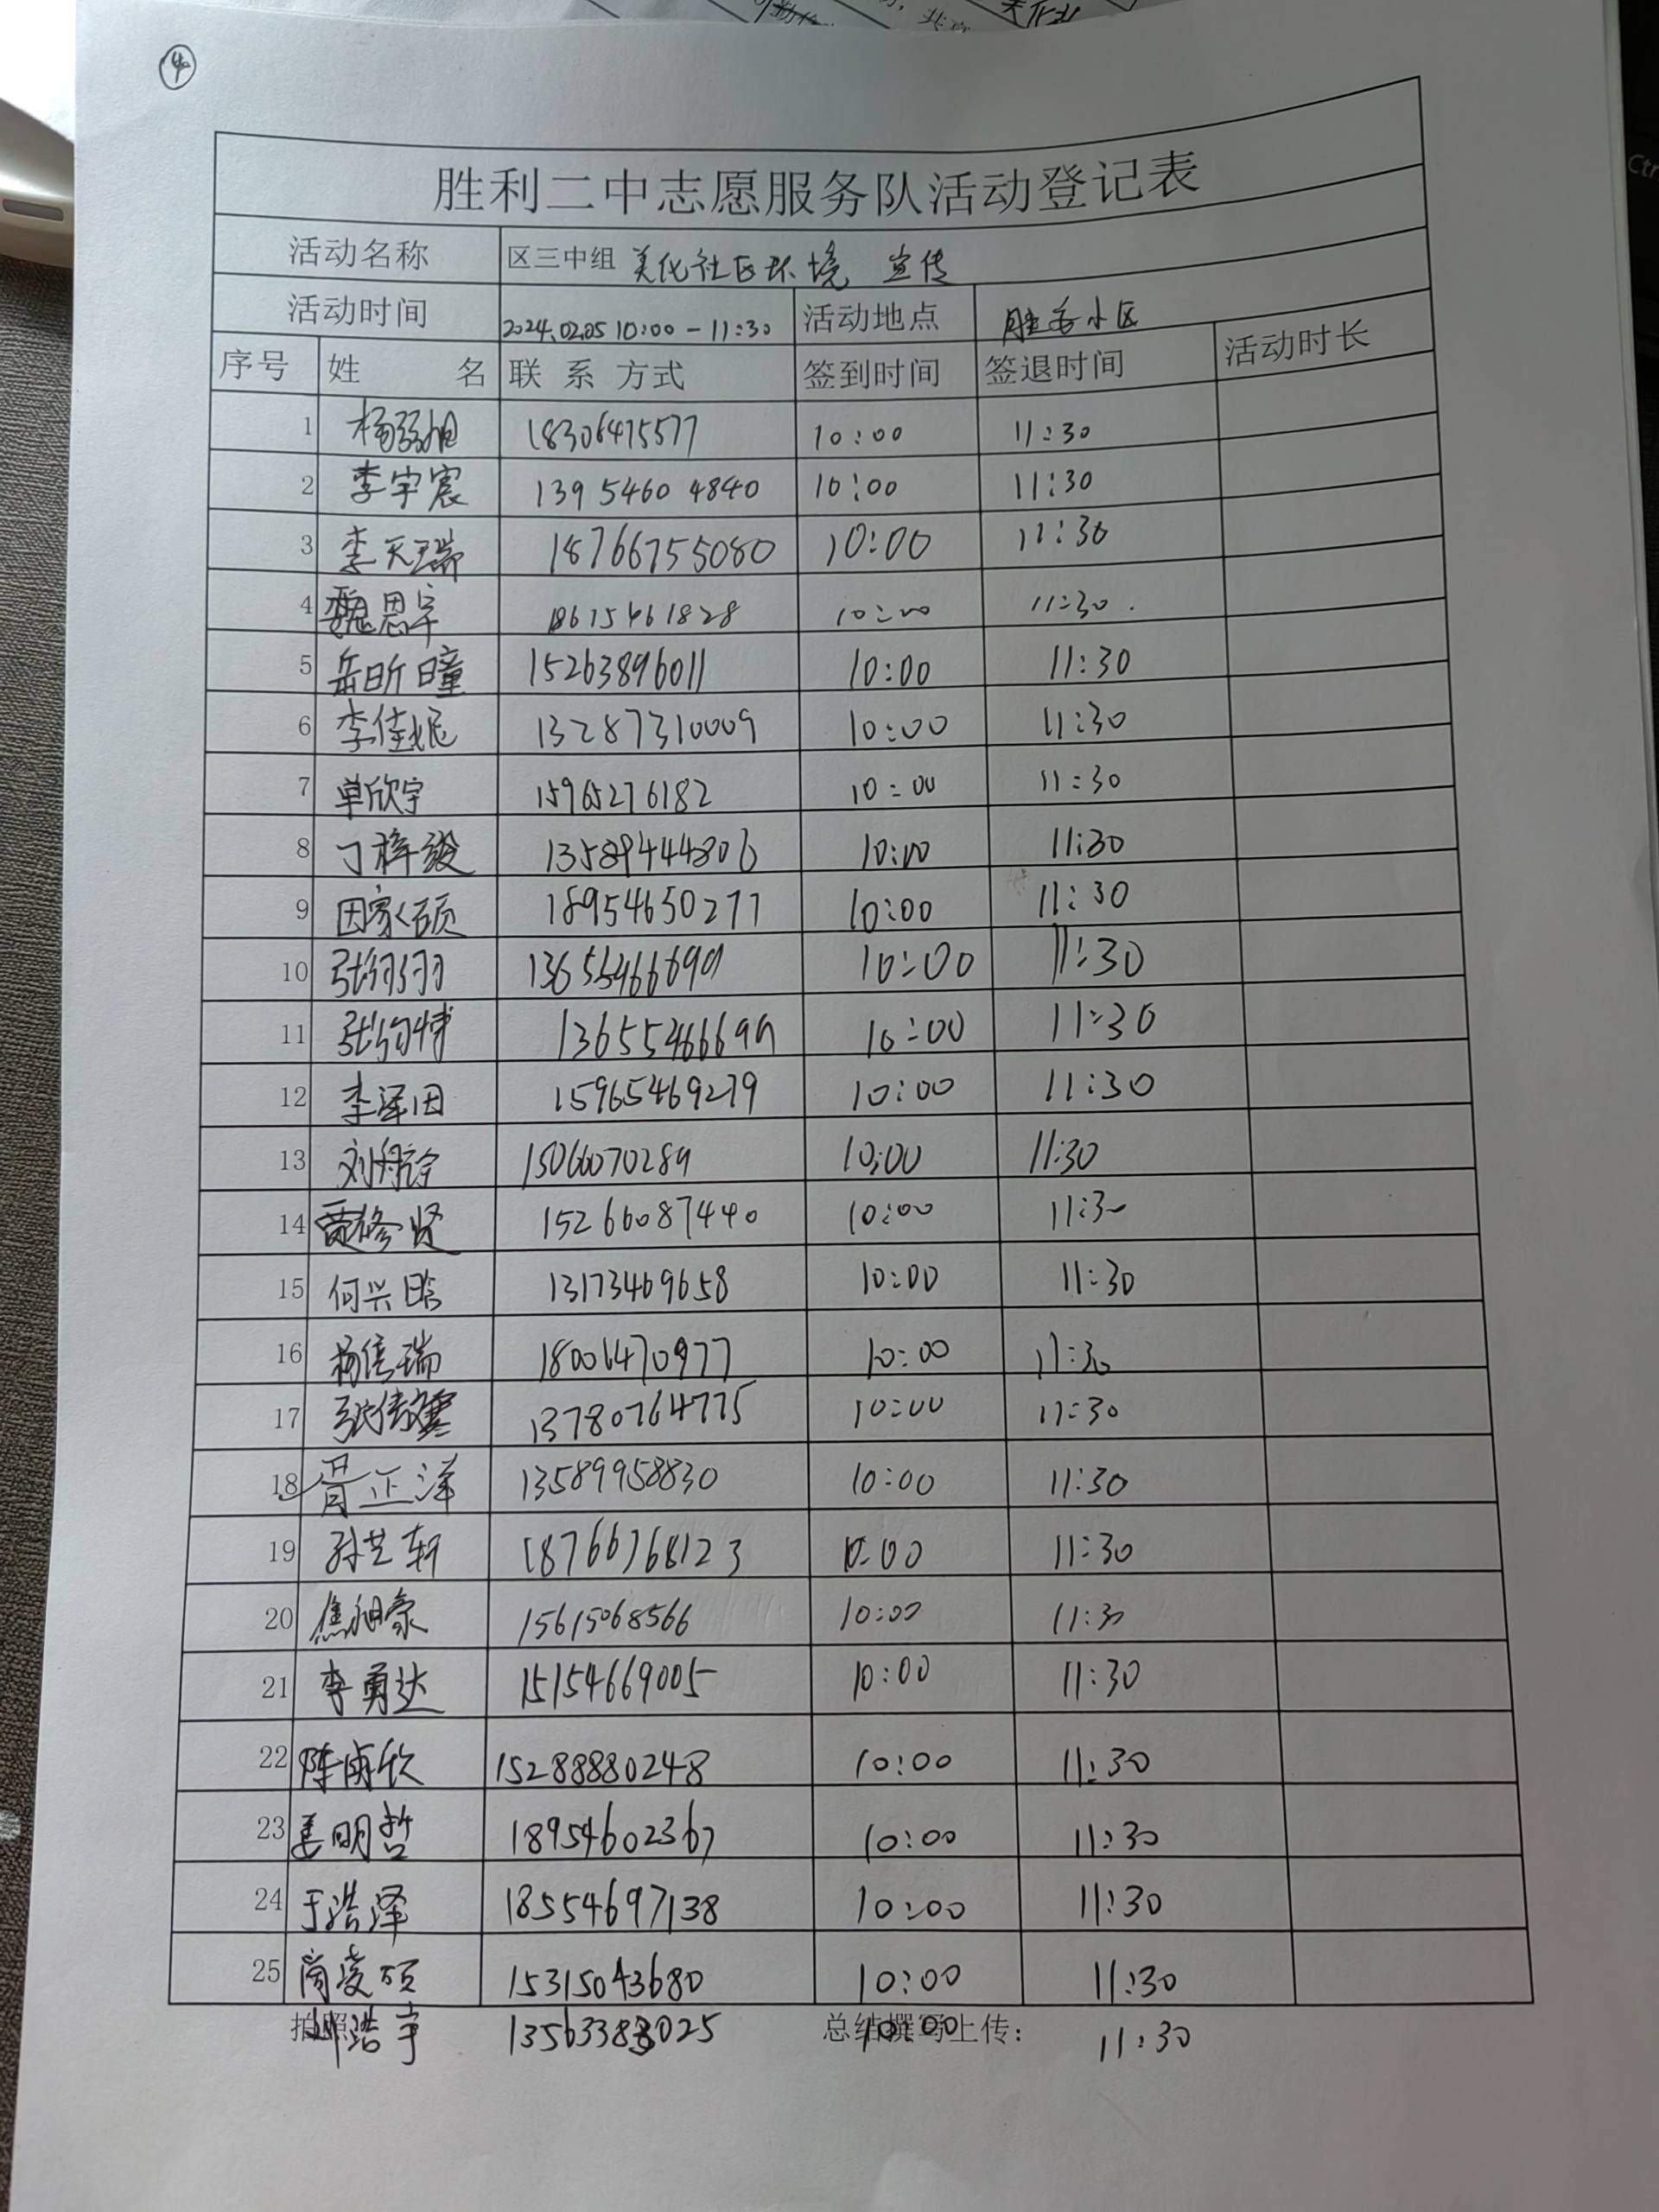 ④
胜利二中志愿服务队活动登记表
活动名称 区三中组 美化社区环境 宣传
活动时间 2024.02.05 10:00-11:30 活动地点 胜利小区
序号 姓 名 联 系 方式 签到时间 签退时间 活动时长
1 18306475577 10:00 11:30
2 李宇宸 13954604840 10:00 11:30
3 李天瑞 18766755080 10:00 11:30
4 魏思宇 18615461828 10:00 11:30
5 岳昕瞳 15263896011 10:00 11:30
6 李佳妮 13287310009 10:00 11:30
7 单欣宇 15965276182 10:00 11:30
8 丁梓骏 13589444806 10:00 11:30
9 因家硕 18954650277 10:00 11:30
10 13655466699 10:00 11:30
11 13655466699 10:00 11:30
12 李泽因 15965469279 10:00 11:30
13 15066070289 10:00 11:30
14 贾修贤 15266087440 10:00 11:30
15 何兴晗 13173469658 10:00 11:30
16 杨信瑞 18006470977 10:00 11:30
17 13780764775 10:00 11:30
18 胥正洋 13589958830 10:00 11:30
19 孙艺轩 18766768123 10:00 11:30
20 焦昶豪 15615068566 10:00 11:30
21 李勇达 15154669005 10:00 11:30
22 陈雨欣 15288880248 10:00 11:30
23 姜明哲 18954602367 10:00 11:30
24 于浩泽 18554697138 10:00 11:30
25 商凌硕 15315043680 10:00 11:30
拍照 总结撰写上传：
浩宇 13563383025 10:00 11:30